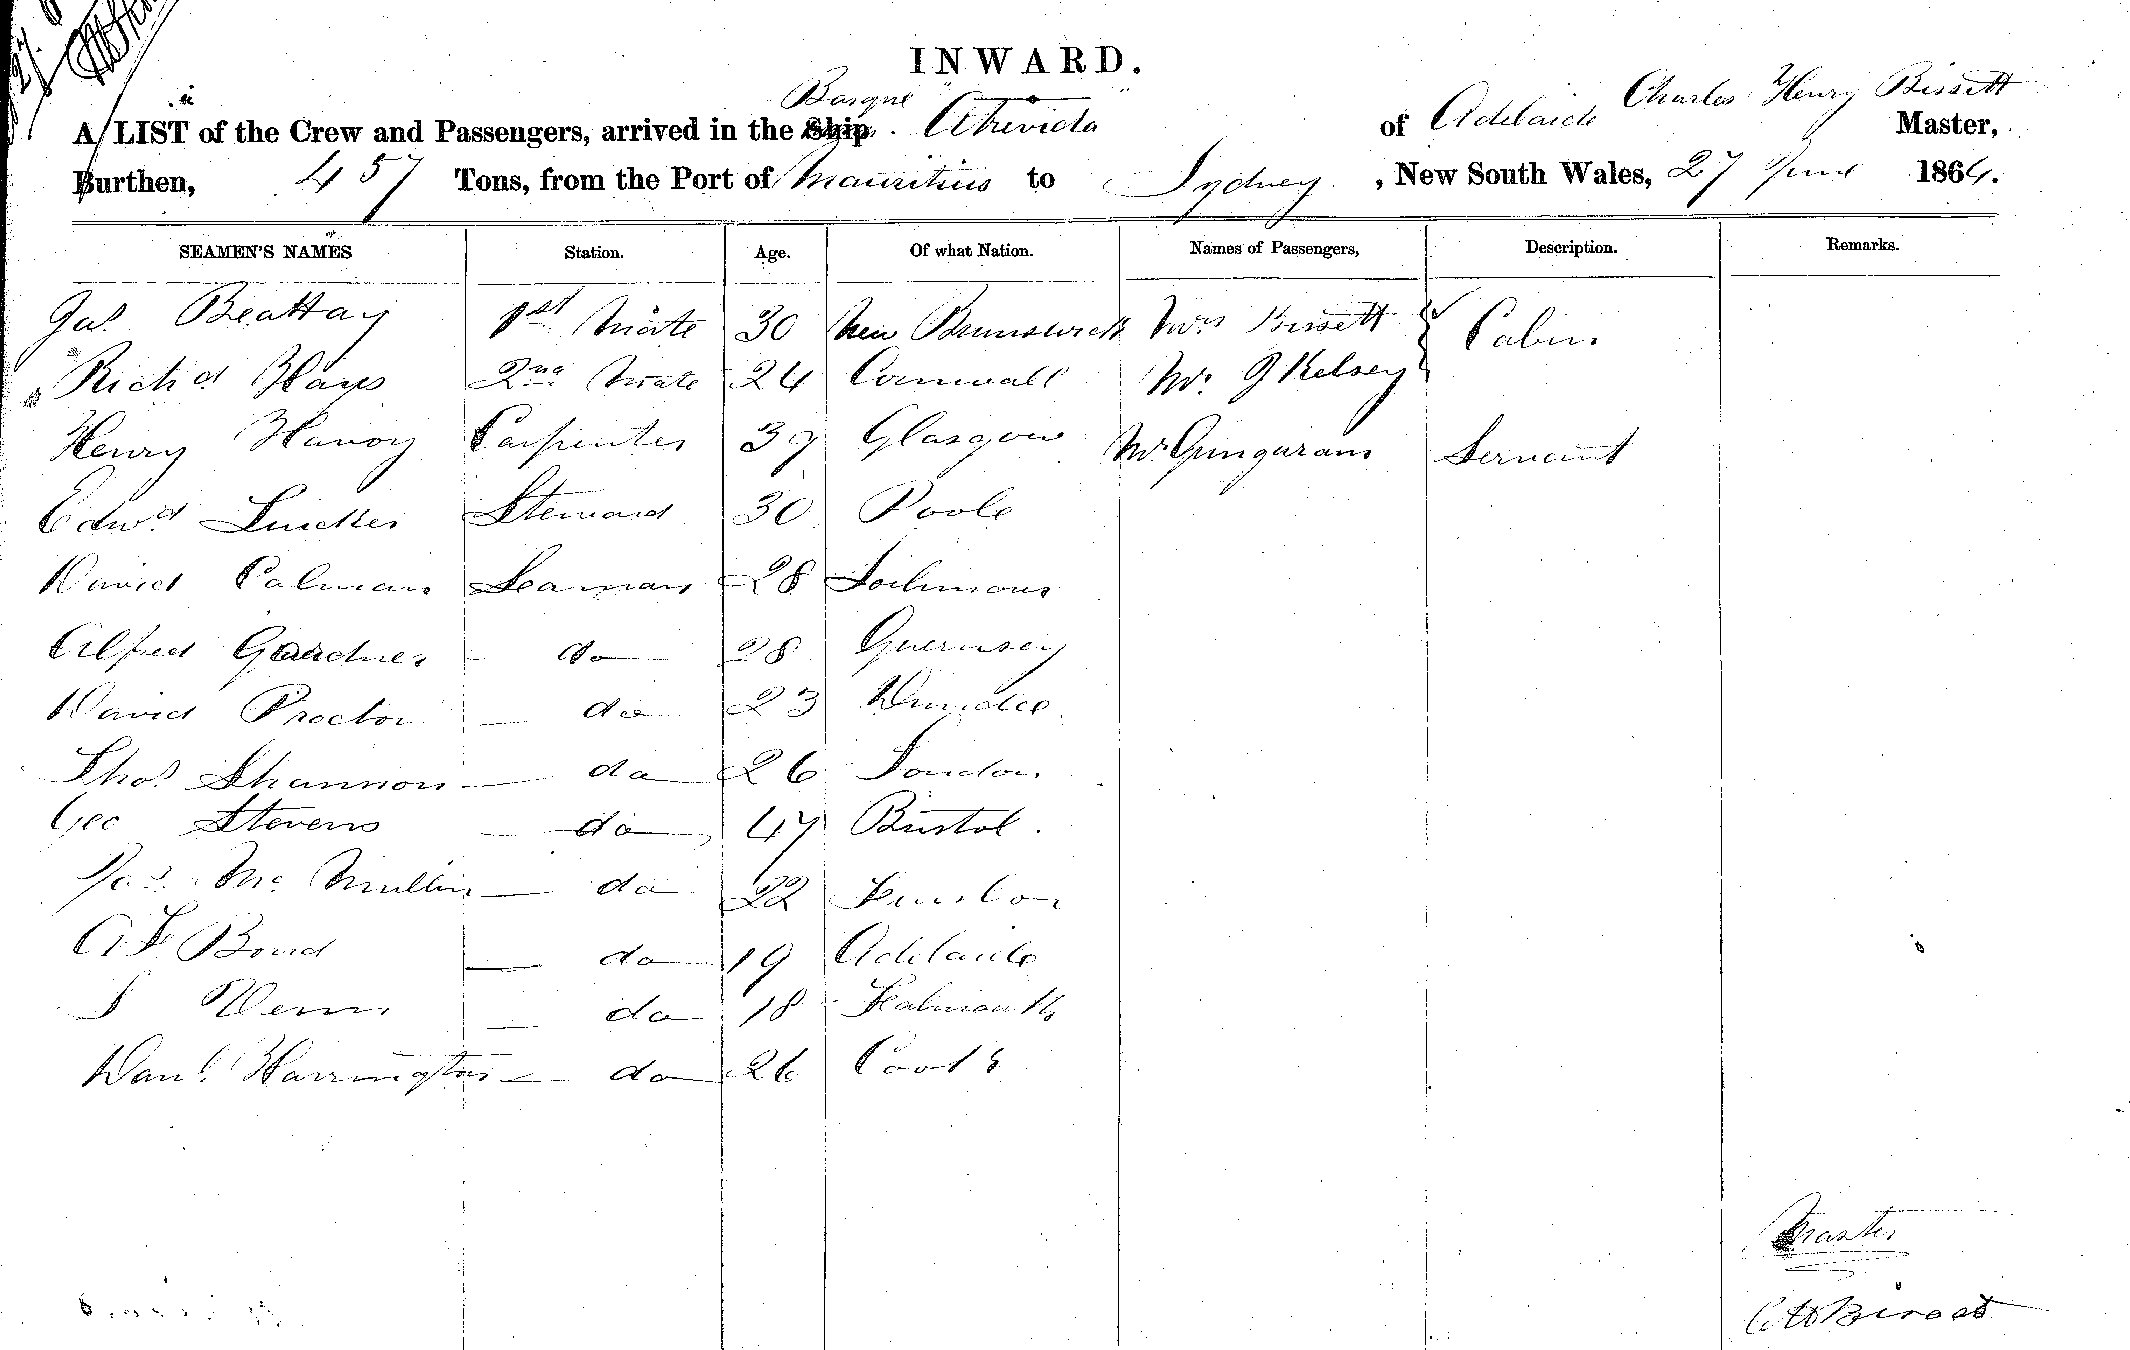 INWARD.
Barque
Charles Henry Bissett
A LIST of the Crew and Passengers, arrived in the Ship "Atrevida" of Adelaide Master,
Burthen, 457 Tons, from the Port of Mauritius to Sydney, New South Wales, 27 June 1864.
SEAMEN'S NAMES Station. Age. Of what Nation. Names of Passengers, Description. Remarks.
Jas Beattay 1st Mate 30 New Brunswick Mrs Bissett Cabin
Richd Hays 2nd Mate 24 Cornwall Mr. J Kelsey
Henry Carpenter 39 Glasgow Mr. Gungaram Servant
Edwd Steward 30 Poole
David Calman Seaman 28
Alfred Gardner do 28 Guernsey
David Proctor do 23 Dundee
Thos Shannon do 26 London
Geo Stevens do 47 Bristol.
Jas. Mc Mullin do 22
A F Bond do 19 Adelaide
do 18 Falmouth
Danl. Harrington do 26
Master
CH Bissett